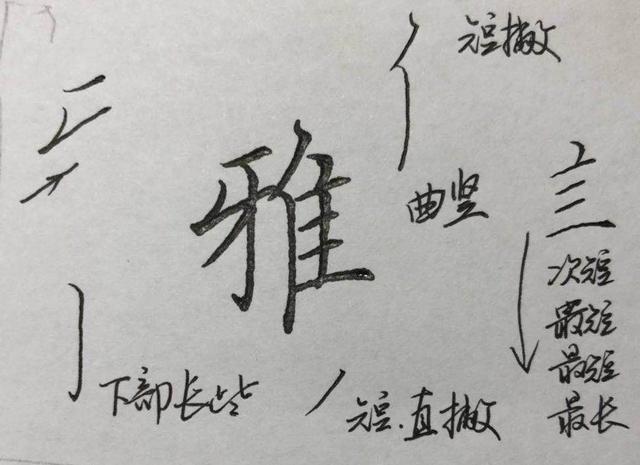 短撇
雅
曲竖
次短
最短
最短
最长
下部长些
短.直撇